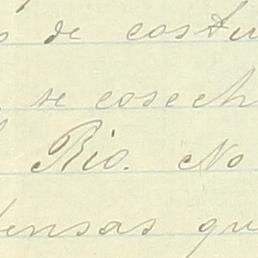 de costu
se cosech
Rio. No
ensas qu